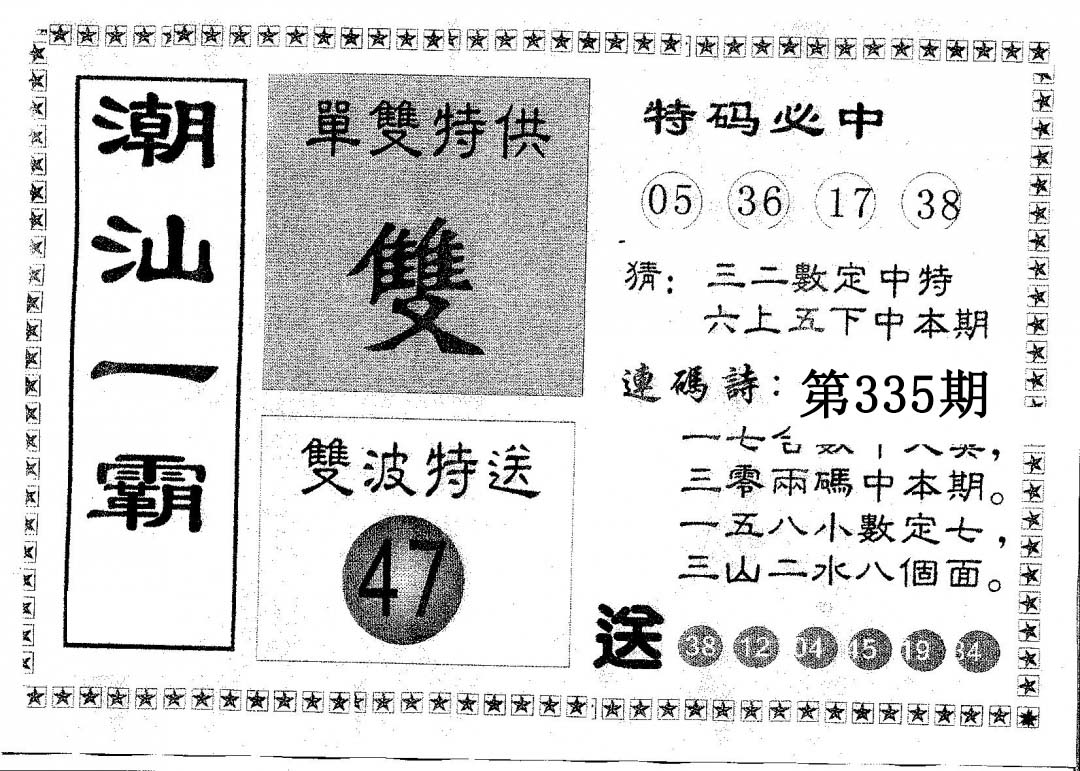 潮汕一霸
單雙特供
雙
雙波特送
47
特码必中
05 36 17 38
猜：三二數定中特
六上五下中本期
連碼詩：第335期
一七合數十八獎，
三零兩碼中本期。
一五八小數定七，
三山二水八個面。
送 38 12 04 45 19 34